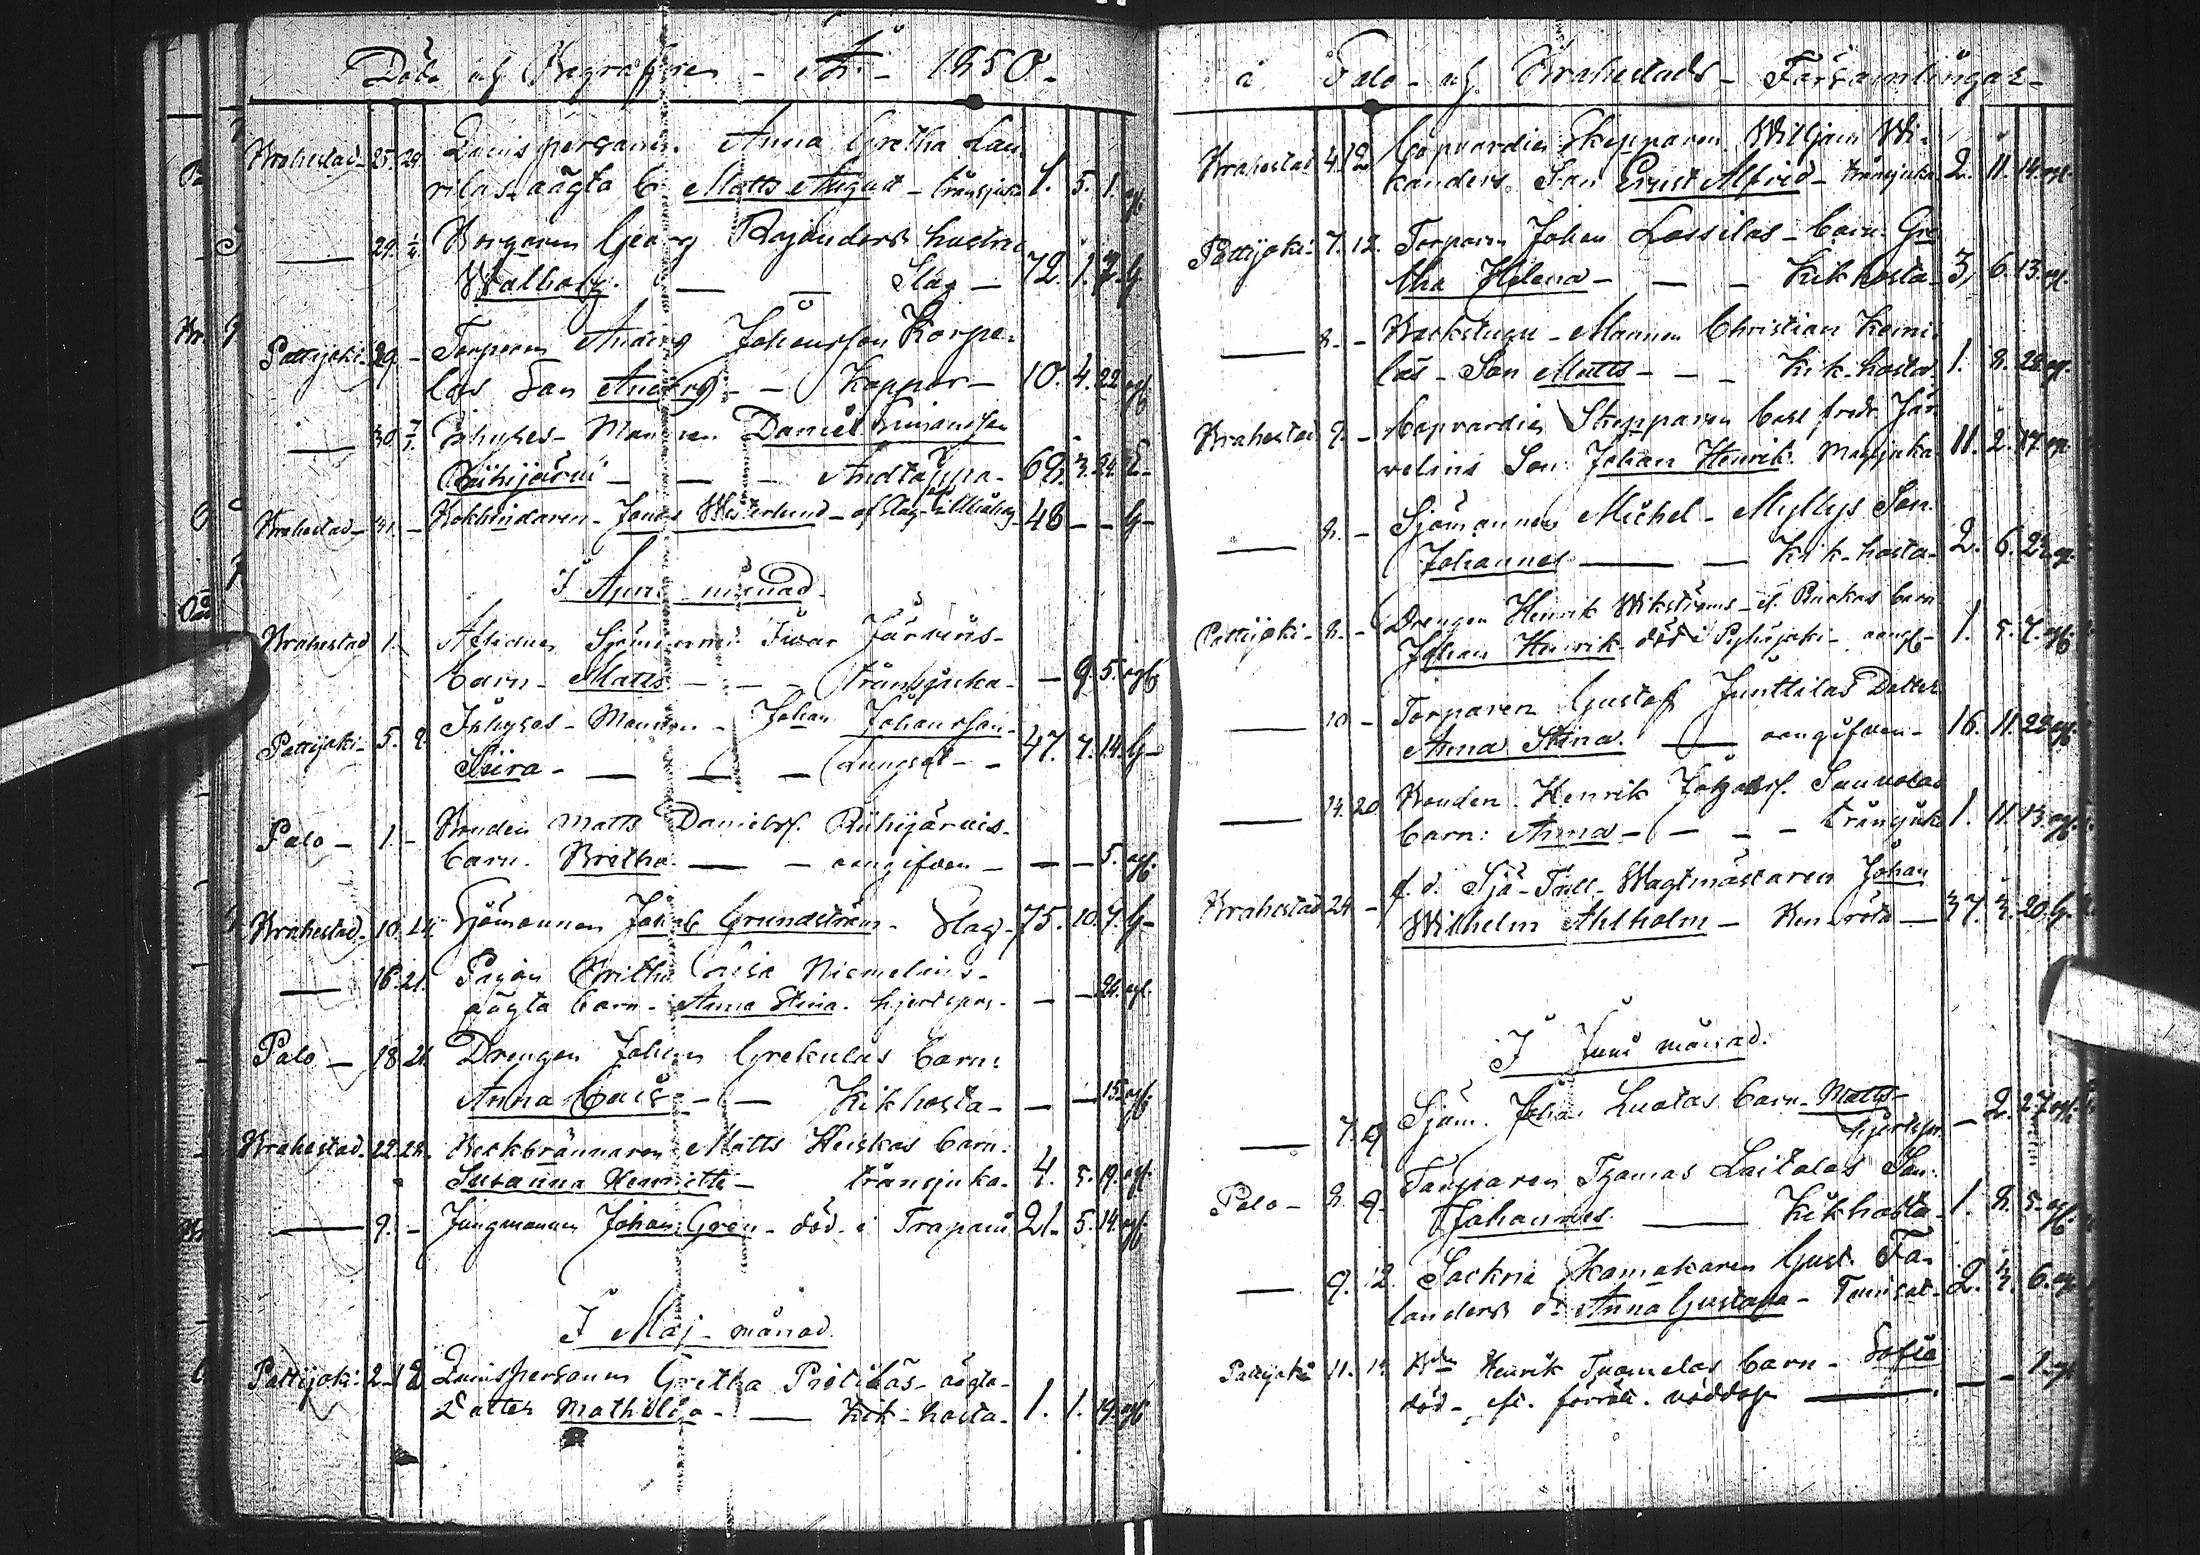 Döde och Begrafne - År - 1850 -
Brahestad - 25. 29. Qvinspersonen Anna Gretha Lau-
rilas oägta b. Matts August - Trånsjuka 1. 5. 1. ogf
29. 1/4 Borgaren Georg Rajanders hustru
Walborg. — — Slag — 72. 1. G
Pattijoki 29. - Torparen Anders Johansson Korpe-
las Son Anders - - Koppor - 10. 4. 22 ogf
— 30. Inhyses - Mannen Daniel Simonsson
Riihijärvi - — - Andtäppa - 69. 3. 24 E -
Brahestad - 31. - Bokbindaren - Jonas Westerlund - af Slag 48 - - G -
I April månad
Brahestad 1. - Aflidne Sjömannen Iwar Järvens -
barn - Matts - - - Trånsjuka - - 9. 5. ogf
Pattijoki - 5. 9. Inhyses - Mannen - Johan Johansson -
Siira - — — — Lungsot - - 47. 7. 14. G -
Palo - 1. - Bonden Matts Danielss. Riihijärvis -
barn. Britha — - oangifven - — — 5. ogf
Brahestad - 10. 14. Sjömannen Jakob Grundström - Slag - 75. 10. 7. G -
— 16. 21. Pigan Britha Caisa Niemeläs -
oägta barn - Anna Stina. hjertspr. - — — 24. ogf.
Palo — 18. 21. Drengen Johan Grekulas barn:
Anna Cais - — Kikhosta - — — 15. ogf.
Brahestad - 22. 28. Beckbrännaren Matts Heiskas barn:
Susanna Henriette - trånsjuka. 4. 5. 19. ogf.
— 9. - Jungmannen Johan Gren - död i Trapani 21. 5. 14. ogf
I Maj - månad.
Pattijoki 2. 12 Qvinspersonen Gretha Pietiläs - oägta -
Dotter Mathilda - — Kik - hosta - 1. 1. 19. ogf
i Salo - och Brahestads - Församlingar -
Brahestad 4. 12 Copvardie Skepparen Willjam Wi-
kanders Son Ernst Alfred - trånsjuka 2. 11. 14. og.
Pattijoki - 7. 12. Torparen Johan Lassilas - barn. Gre
tha Helena - — - Kikhosta - 3. 6. 13. og.
— 8. - Backstugu - Mannen Christian Keini-
läs - Son Matts - - - Kik - hosta. 1. 8. 28 og.
Brahestad 9. - Copvardie Skepparen Carl Fredr. Jär-
velins Son Johan Henrik. Magsjuka 11. 2. 17. og.
— 8. - Sjömannen Michel - Myllys Son
Johannes — — Kik - hosta - 2. 6. 22 og.
Pattijoki - 8. - Drengen Henrik Wikströms - barn
Johan Henrik död i Pyhäjoki - oangf - 1. 5. 7. ogf
— 10 - Torparen Gustaf Junttilas Dotter
Anna Stina. — oangifven - 16. 11. 22 ogf.
— 14. 20. Bonden Henrik Johanss. Sauvolas
barn: Anna - — - - trånsjuka 1. 11. 13. ogf.
Brahestad 24 - f. d. Sjö - Tull - Wagtmästaren Johan
Wilhelm Ahlholm - Benröta — 37. 3. 20. G.
I Juni månad.
— 7. 9 Sjöm. Johan Luotos barn - Matts -
hjertspr. - 2. 27 ogf.
Palo - 8. 9. Torparen Thomas Laitalas Son:
Johannes — Kikhosta - 1. 8. 5. ogf.
— 9. 12 Sockne Skomakaren Gust. Fa-
landers d. Anna Gustafa - Twinsot - 2. 3. 6. og
Pattijoki 11. 14 Bdn Henrik Tuomelas barn - Sofia
död - eft. förrätt. nöddop — — - 1. og.